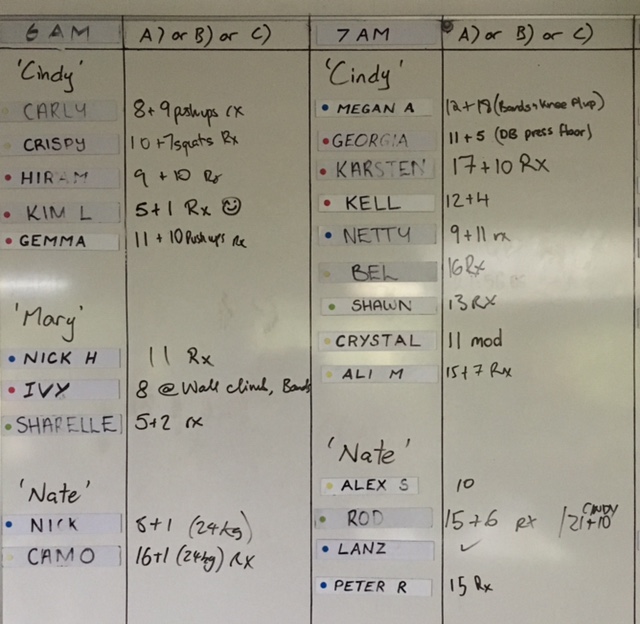 6 AM A) or B) or C)
'Cindy'
CARLY 8+9 pushups rx
CRISPY 10+7squats Rx
HIRAM 9+10 Rx
KIM L 5+1 Rx ☺
GEMMA 11+10 Pushups Rx
'Mary'
NICK H 11 Rx
IVY 8 @ Wall climb, Bands
SHARELLE 5+2 rx
'Nate'
NICK 8+1 (24kg)
CAMO 16+1 (24kg) Rx
7 AM A) or B) or C)
'Cindy'
MEGAN A 12+18 (Bands+Knee P/up)
GEORGIA 11+5 (DB press floor)
KARSTEN 17+10 Rx
KELL 12+4
NETTY 9+11 rx
BEL 16 Rx
SHAWN 13 RX
CRYSTAL 11 mod
ALI M 15+7 Rx
'Nate'
ALEX S 10
ROD 15+6 rx / CINDY 21+10
LANZ ✓
PETER R 15 Rx